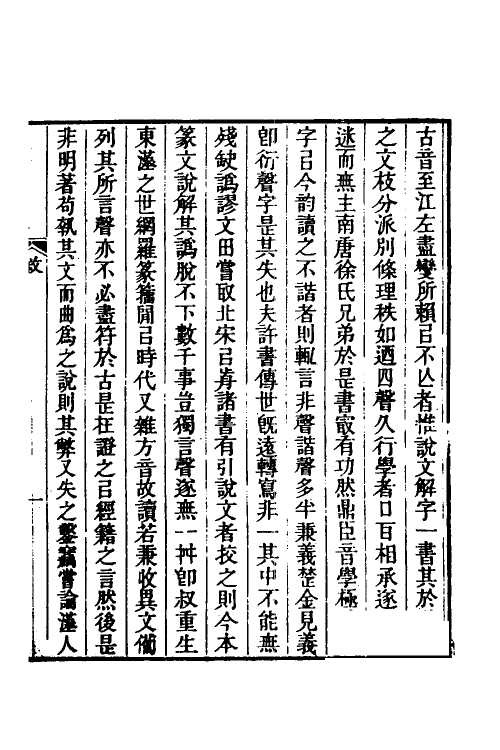 古音至江左盡變所賴㠯不亾者惟說文解字一書其於
之文枝分派別條理秩如迺四聲久行學者口百相承逐
迷而無主南唐徐氏兄弟於是書㝡有功然鼎臣音學極
字㠯今韵讀之不諧者則輒言非聲諧聲多半兼義楚金見義
卽衍聲字是其失也夫許書傳世旣遠轉寫非一其中不能無
殘缺譌謬文田嘗取北宋㠯前諸書有引說文者挍之則今本
篆文說解其譌脫不下數千事豈獨言聲遂無一舛卽叔重生
東漢之世網羅篆籒閒㠯時代又雜方音故讀若兼收異文僃
列其所言聲亦不必盡符於古是在證之㠯經籍之言然後是
非明著苟執其文而曲爲之說則其弊又失之鑿竊嘗論漢人
敘
一